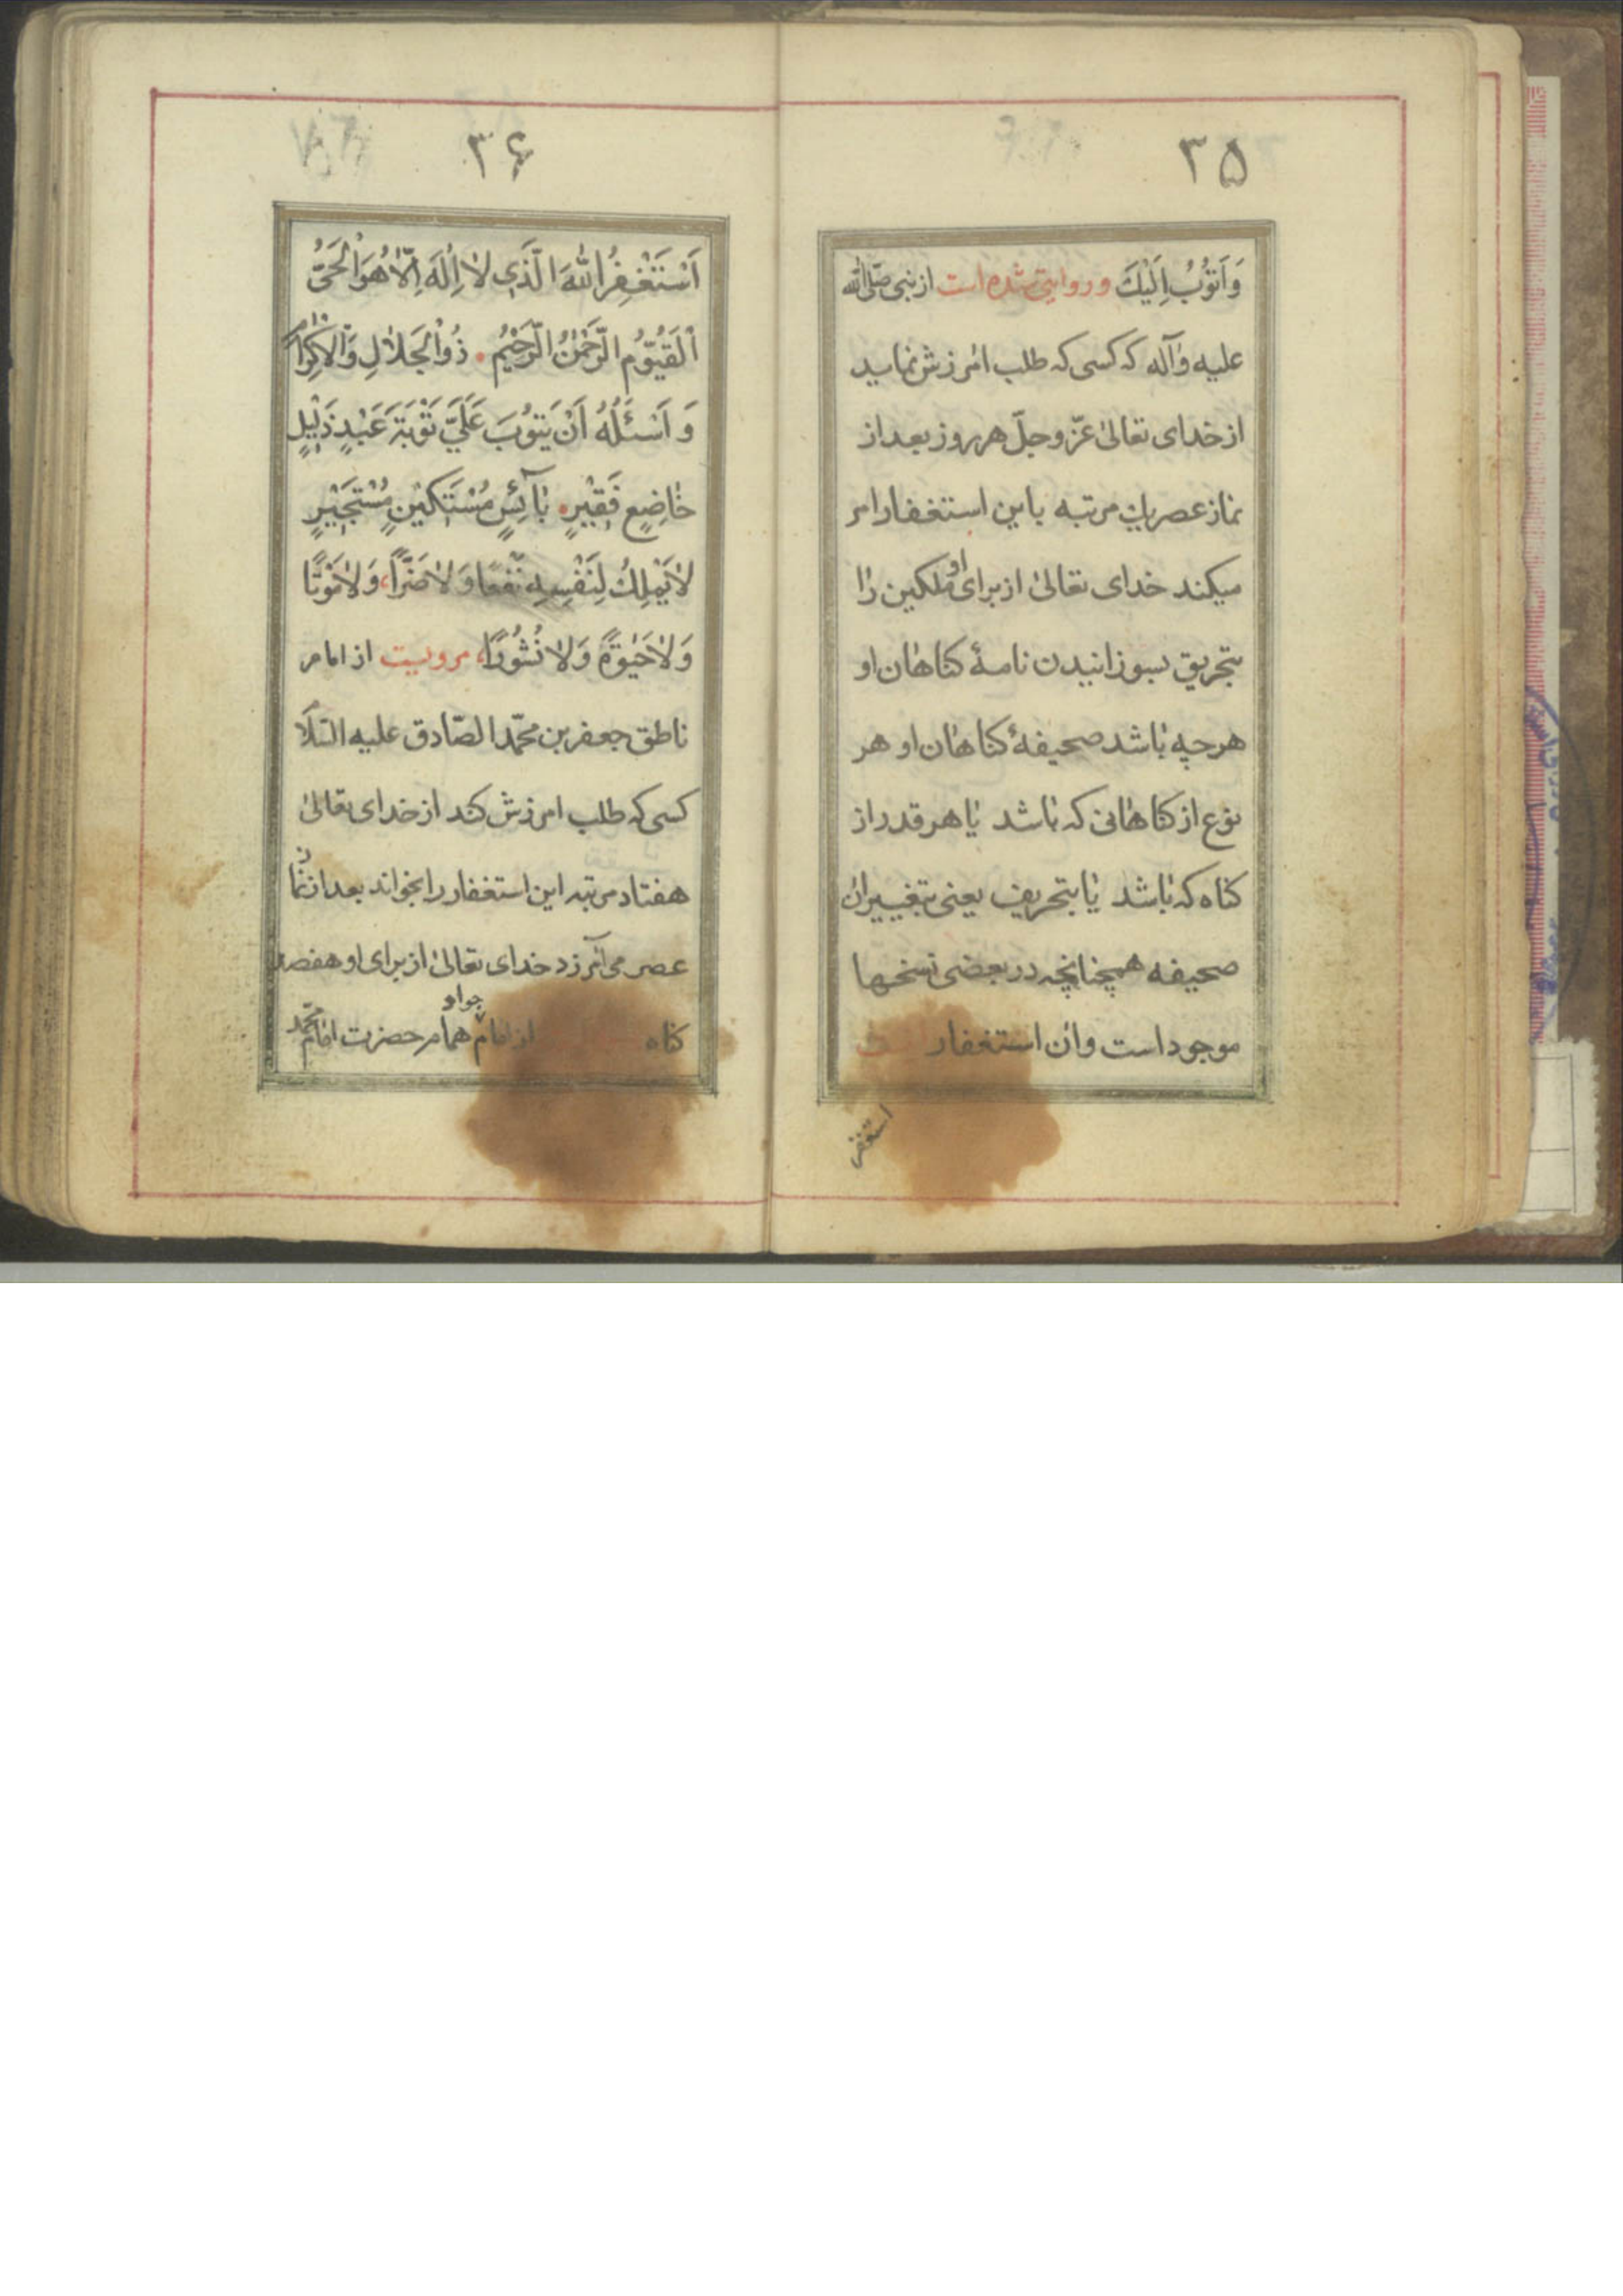 ۳۵
وَاَتُوبُ اِلَیْكَ و روایتی شده است از نبی صلّی الله
علیه وآله که کسی که طلب امرزش نماید
از خدای تعالی عزّ وجلّ هر روز بعد از
نماز عصر یك مرتبه باین استغفار امر
میکند خدای تعالی از برای او ملکین را
بتحریق بسوزانیدن نامهٔ کناهان او
هرچه باشد صحیفهٔ کناهان او هر
نوع از کناهانی که باشد یا هر قدر از
کناه که باشد یا بتحریف یعنی بتغییر ان
صحیفه همچنانچه در بعضی نسخها
موجود است وان استغفار
استغفر
۳۶
اَسْتَغْفِرُ اللهَ الَّذِی لاٰ اِلٰهَ اِلّاٰ هُوَ الْحَیُّ
اَلْقَیُّوُمُ الرَّحْمٰنُ الرَّحیْمُ ۰ ذُو الْجَلاٰلِ وَالْاِکْرٰامِ
وَ اَسْئَلُهُ اَنْ یَتُوبَ عَلَیَّ تَوْبَةَ عَبْدٍ ذَلیٖلٍ
خٰاضِعٍ فَقیٖرٍ ۰ بٰآئِسٍ مُسْتَکیٖنٍ مُسْتَجیٖرٍ
لاٰ یَمْلِكُ لِنَفْسِهِ نَفْعًا وَ لاٰ ضَرًّا، وَ لاٰ مَوْتًا
وَ لاٰ حَیٰوةً وَ لاٰ نُشُورًا، مرویست از امام
ناطق جعفر بن محمّد الصّادق علیه السّلام
کسی که طلب امرزش کند از خدای تعالی
هفتاد مرتبه این استغفار را بخواند بعد از نماز
عصر می آمرزد خدای تعالی از برای او هفصد
کناه از امام جواد همام حضرت امام محمّد